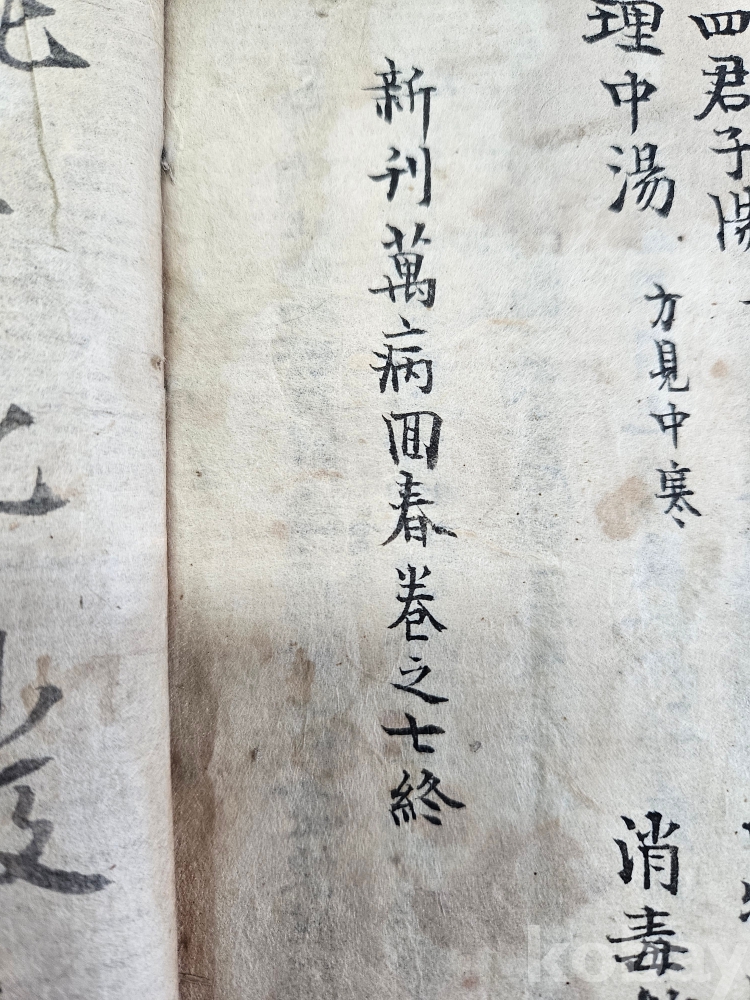 四君子湯
理中湯 方見中寒
消毒
新刊萬病回春卷之七終
kobay